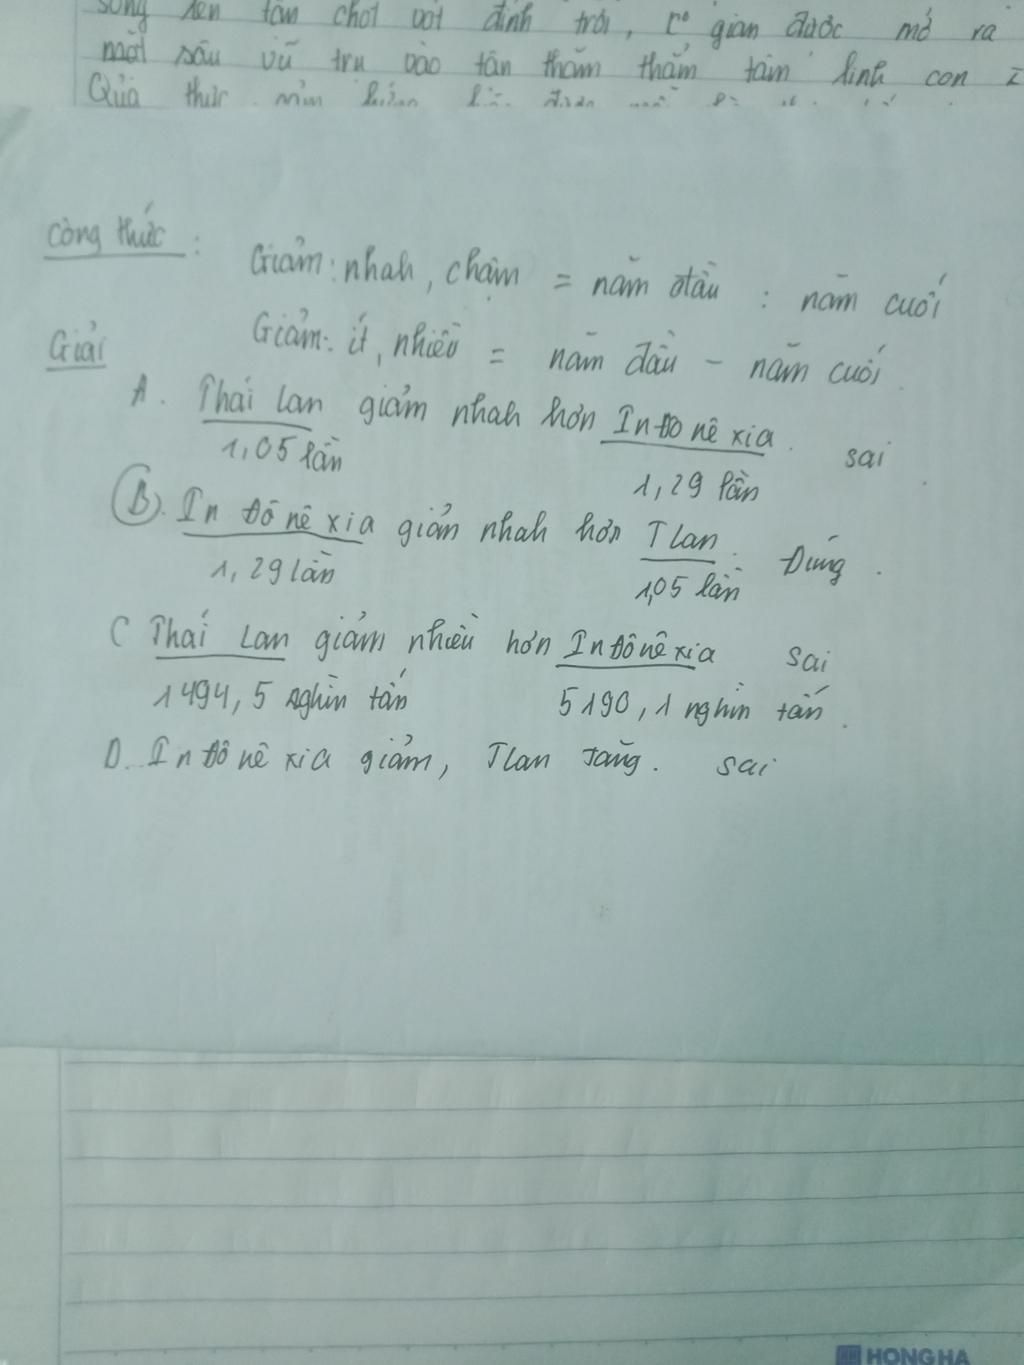 sông lên tân chót vót đỉnh trời, ro gian được mở ra
một sâu vũ trụ vào tân thăm thẳm tâm linh con
Quả thực
Công thức : Giảm: nhah, chậm = năm đầu : năm cuối
Giảm: ít, nhiều = năm đầu - năm cuối.
Giải
A. Thái Lan giảm nhah hơn In Đô nê xia. sai
1,05 lần 1,29 lần
B. In Đô nê xia giảm nhah hơn T Lan. Đúng.
1,29 lần 1,05 lần
C Thái Lan giảm nhiều hơn In Đô nê xia sai
1494,5 nghìn tấn 5190,1 nghìn tấn.
D. In Đô nê xia giảm, T Lan tăng. sai
HONG HA